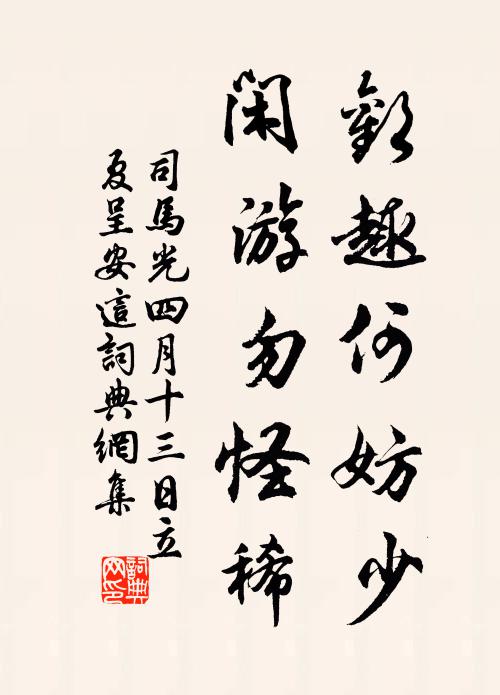 歡趣何妨少
閑游勿怪稀
司馬光四月十三日立
夏呈安這詞典網集
詞典網印